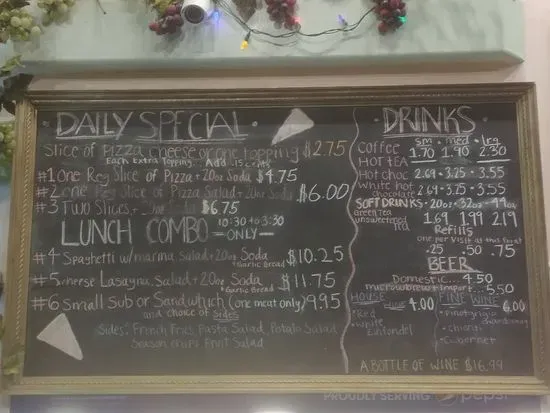 DAILY SPECIAL
Slice of Pizza cheese or one topping $2.75
Each Extra Topping Add .15 cents
#1 One Reg Slice of Pizza + 20oz Soda $4.75
#2 one Reg Slice of Pizza Salad + 20oz Soda $6.00
#3 Two Slices + Soda $6.75
LUNCH COMBO 10:30 to 3:30
ONLY
#4 Spaghetti w/marina Salad + 20oz Soda $10.25
+Garlic Bread
#5 cheese Lasagna, Salad + 20oz Soda $11.75
+Garlic Bread
#6 Small Sub or Sandwhich (one meat only) 9.95
and choice of sides
Sides: French Fries Pasta Salad, Potato Salad
Season chips Fruit Salad
DRINKS
sm · med · lrg
Coffee 1.70 1.90 2.30
HOT TEA
Hot choc 2.69 · 3.25 · 3.55
White hot chocolate 2.69 · 3.25 · 3.55
SOFT DRINKS · 20oz · 32oz · 44oz
Green Tea
unsweetened Tea 1.69 1.99 2.19
Refills
one per visit at this
.25 .50 .75
BEER
Domestic... 4.50
microbrew + import... 5.50
HOUSE WINE 4.00
· Red
· White
Zinfandel
FINE WINE 6.00
· pinot grigio
chardonnay
· chianti
· Cabernet
A BOTTLE OF WINE $16.99
PROUDLY SERVING pepsi